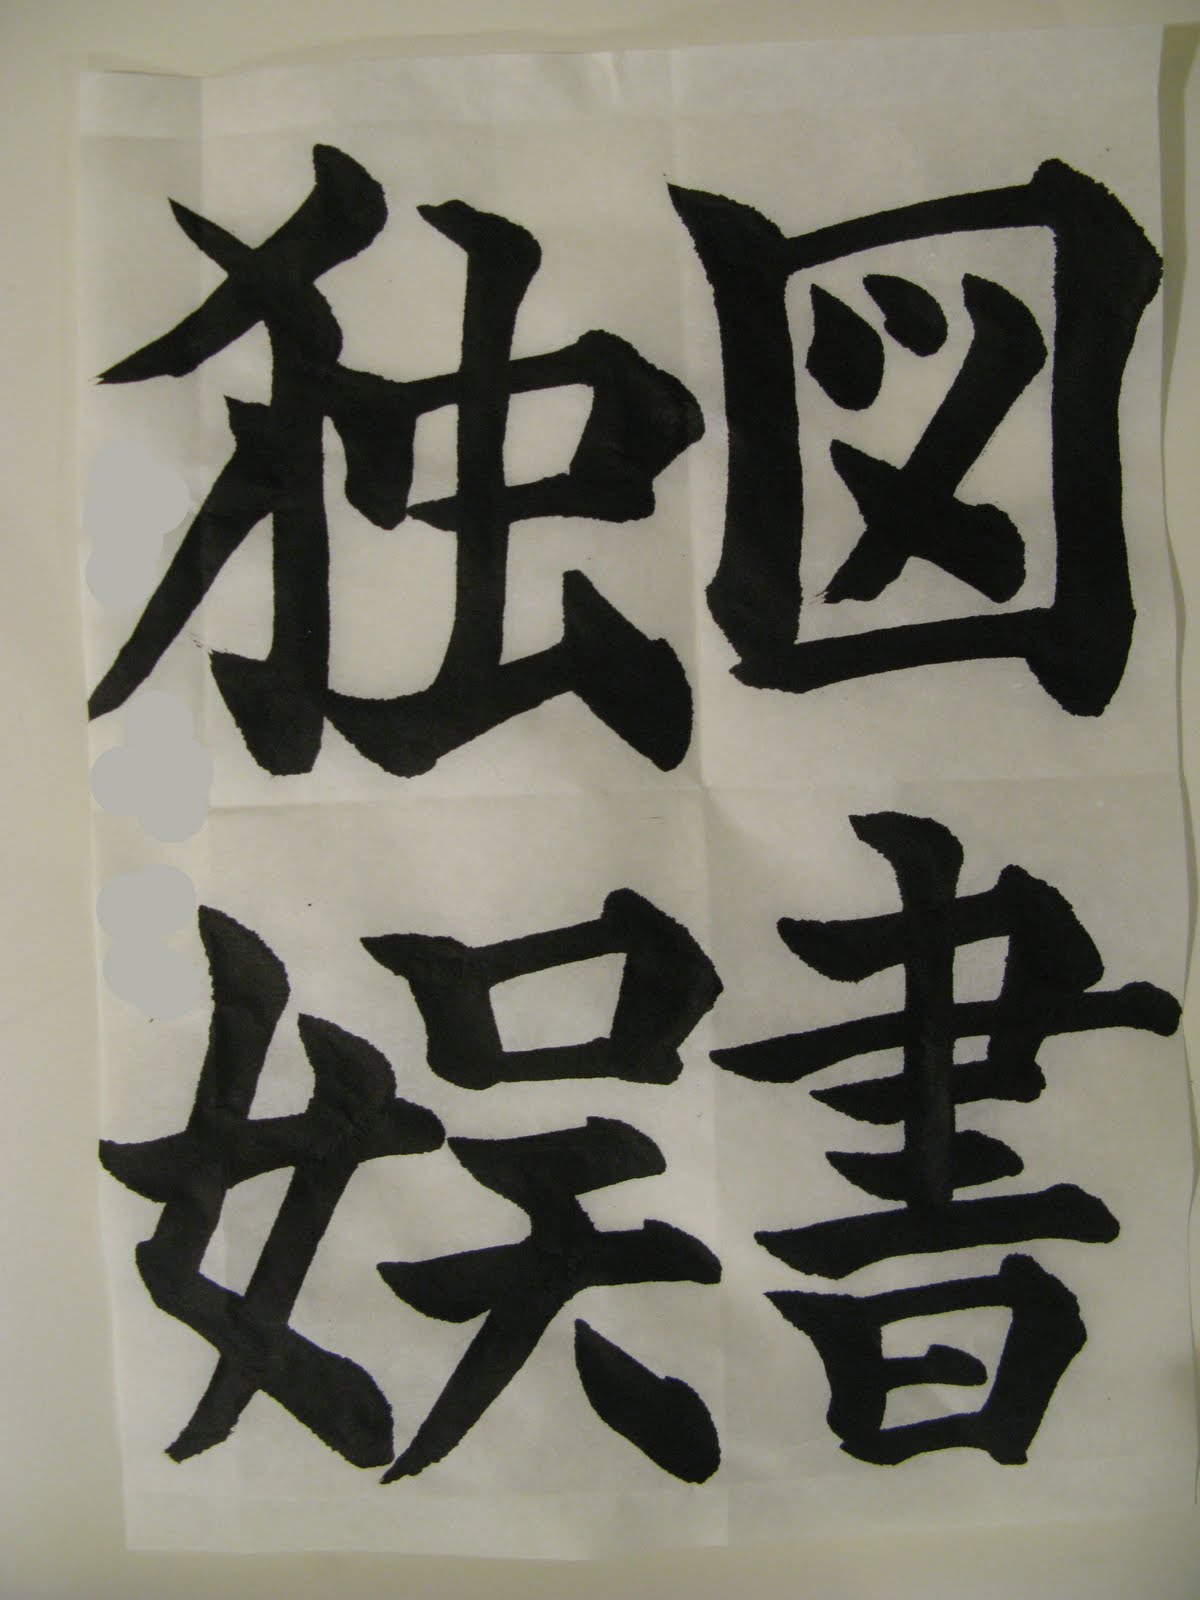 図書
独娯